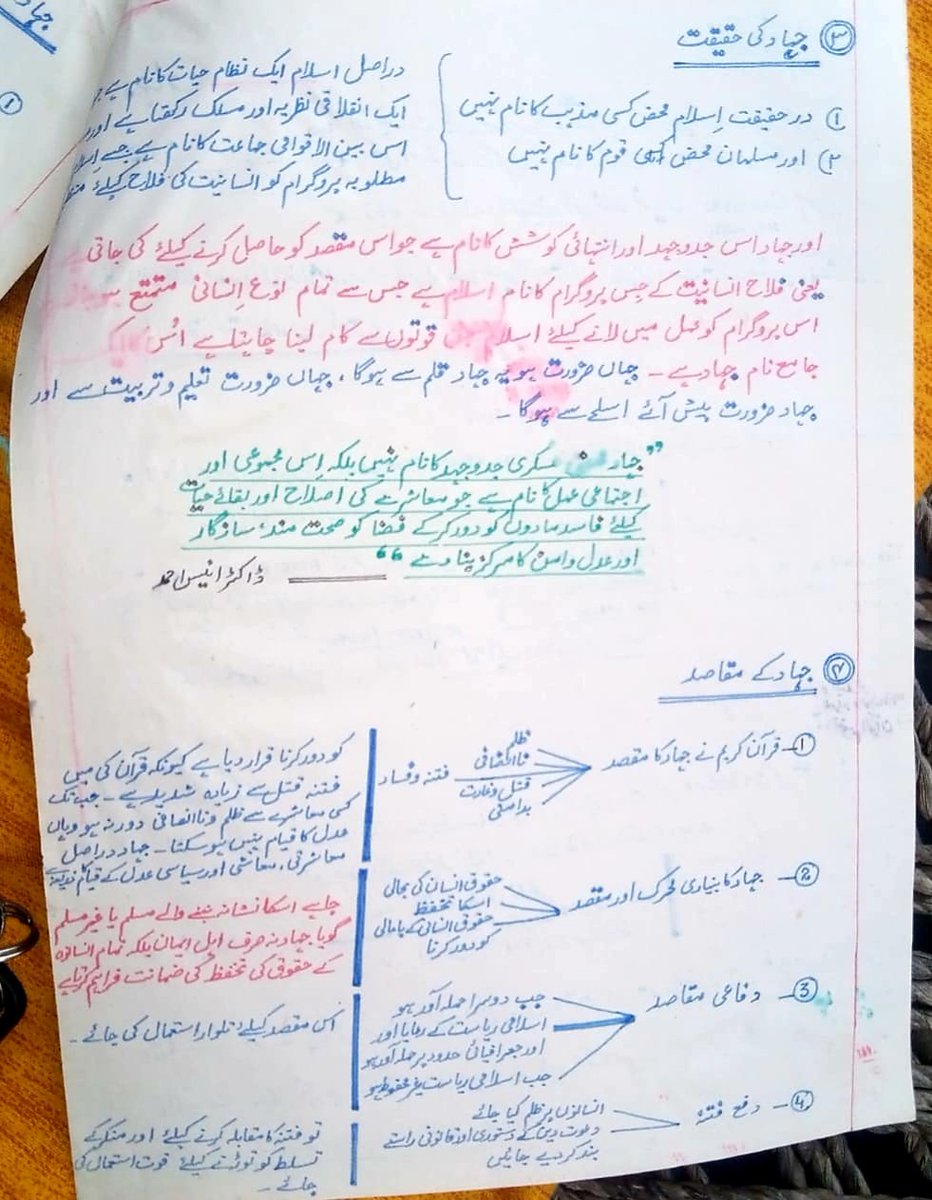 جہاد
①
③ جہاد کی حقیقت
① در حقیقت اِسلام محض کسی مذہب کا نام نہیں
② اور مسلمان محض کسی قوم کا نام نہیں
دراصل اسلام ایک نظام حیات کا نام ہے
ایک انقلابی نظریہ اور مسلک رکھتا ہے اور
اس بین الاقوامی جماعت کا نام ہے جسے
مطلوبہ پروگرام کو انسانیت کی فلاح کیلئے
اور جہاد اس جدوجہد اور انتہائی کوشش کا نام ہے جو اس مقصد کو حاصل کرنے کیلئے کی جاتی
یعنی فلاح انسانیت کے جس پروگرام کا نام اسلام ہے جس سے تمام نوع اِنسانی متمتع
اس پروگرام کو عمل میں لانے کیلئے اسلام جن قوتوں سے کام لینا چاہتا ہے اُس کا
جامع نام جہاد ہے ۔ جہاں ضرورت ہو یہ جہاد قلم سے ہوگا ، جہاں ضرورت تعلیم و تربیت سے اور
جہاد ضرورت پیش آئے اسلحے سے ہوگا ۔
” جہاد عسکری جدوجہد کا نام نہیں بلکہ اِس مجموعی اور
اجتماعی عمل کا نام ہے جو معاشرے کی اصلاح اور بقائے حیات
کیلئے فاسد مادوں کو دور کرکے فضا کو صحت مند ، سازگار
اور عدل و امن کا مرکز بنا دے “
ڈاکٹر انیس احمد
⑦ جہاد کے مقاصد
① قرآن کریم نے جہاد کا مقصد
ظلم
ناانصافی
قتل و غارت
بدامنی
فتنہ و فساد
کو دور کرنا قرار دیا ہے کیونکہ قرآن کی میں
فتنہ قتل سے زیادہ شدید ہے ۔ جب تک
کسی معاشرے سے ظلم و ناانصافی دور نہ ہو وہاں
عدل کا قیام نہیں ہوسکتا ۔ جہاد دراصل
معاشرتی ، معاشی اور سیاسی عدل کے قیام کا ذریعہ ہے
② جہاد کا بنیادی محرک اور مقصد
حقوق انسان کی بحالی
اسکا تحفظ
حقوق انسانی کے پامالی
کو دور کرنا
چاہے اسکا نشانہ بننے والے مسلم یا غیر مسلم
گویا جہاد نہ صرف اہل ایمان بلکہ تمام انسانوں
کے حقوق کی تحفظ کی ضمانت فراہم کرتا ہے
③ دفاعی مقاصد
جب دوسرا حملہ آور ہو
اسلامی ریاست کے رعایا اور
اور جغرافیائی حدود پر حملہ آور ہو
جب اسلامی ریاست غیر محفوظ ہو
اس مقصد کیلئے تلوار استعمال کی جائے ۔
④ دفع فتنہ
انسانوں پر ظلم کیا جائے
دعوت دین کے دستوری اور قانونی راستے
بند کردیے جائیں
تو فتنہ کا مقابلہ کرنے کیلئے اور منکر کے
تسلط کو توڑنے کیلئے قوت استعمال کی
جائے ۔